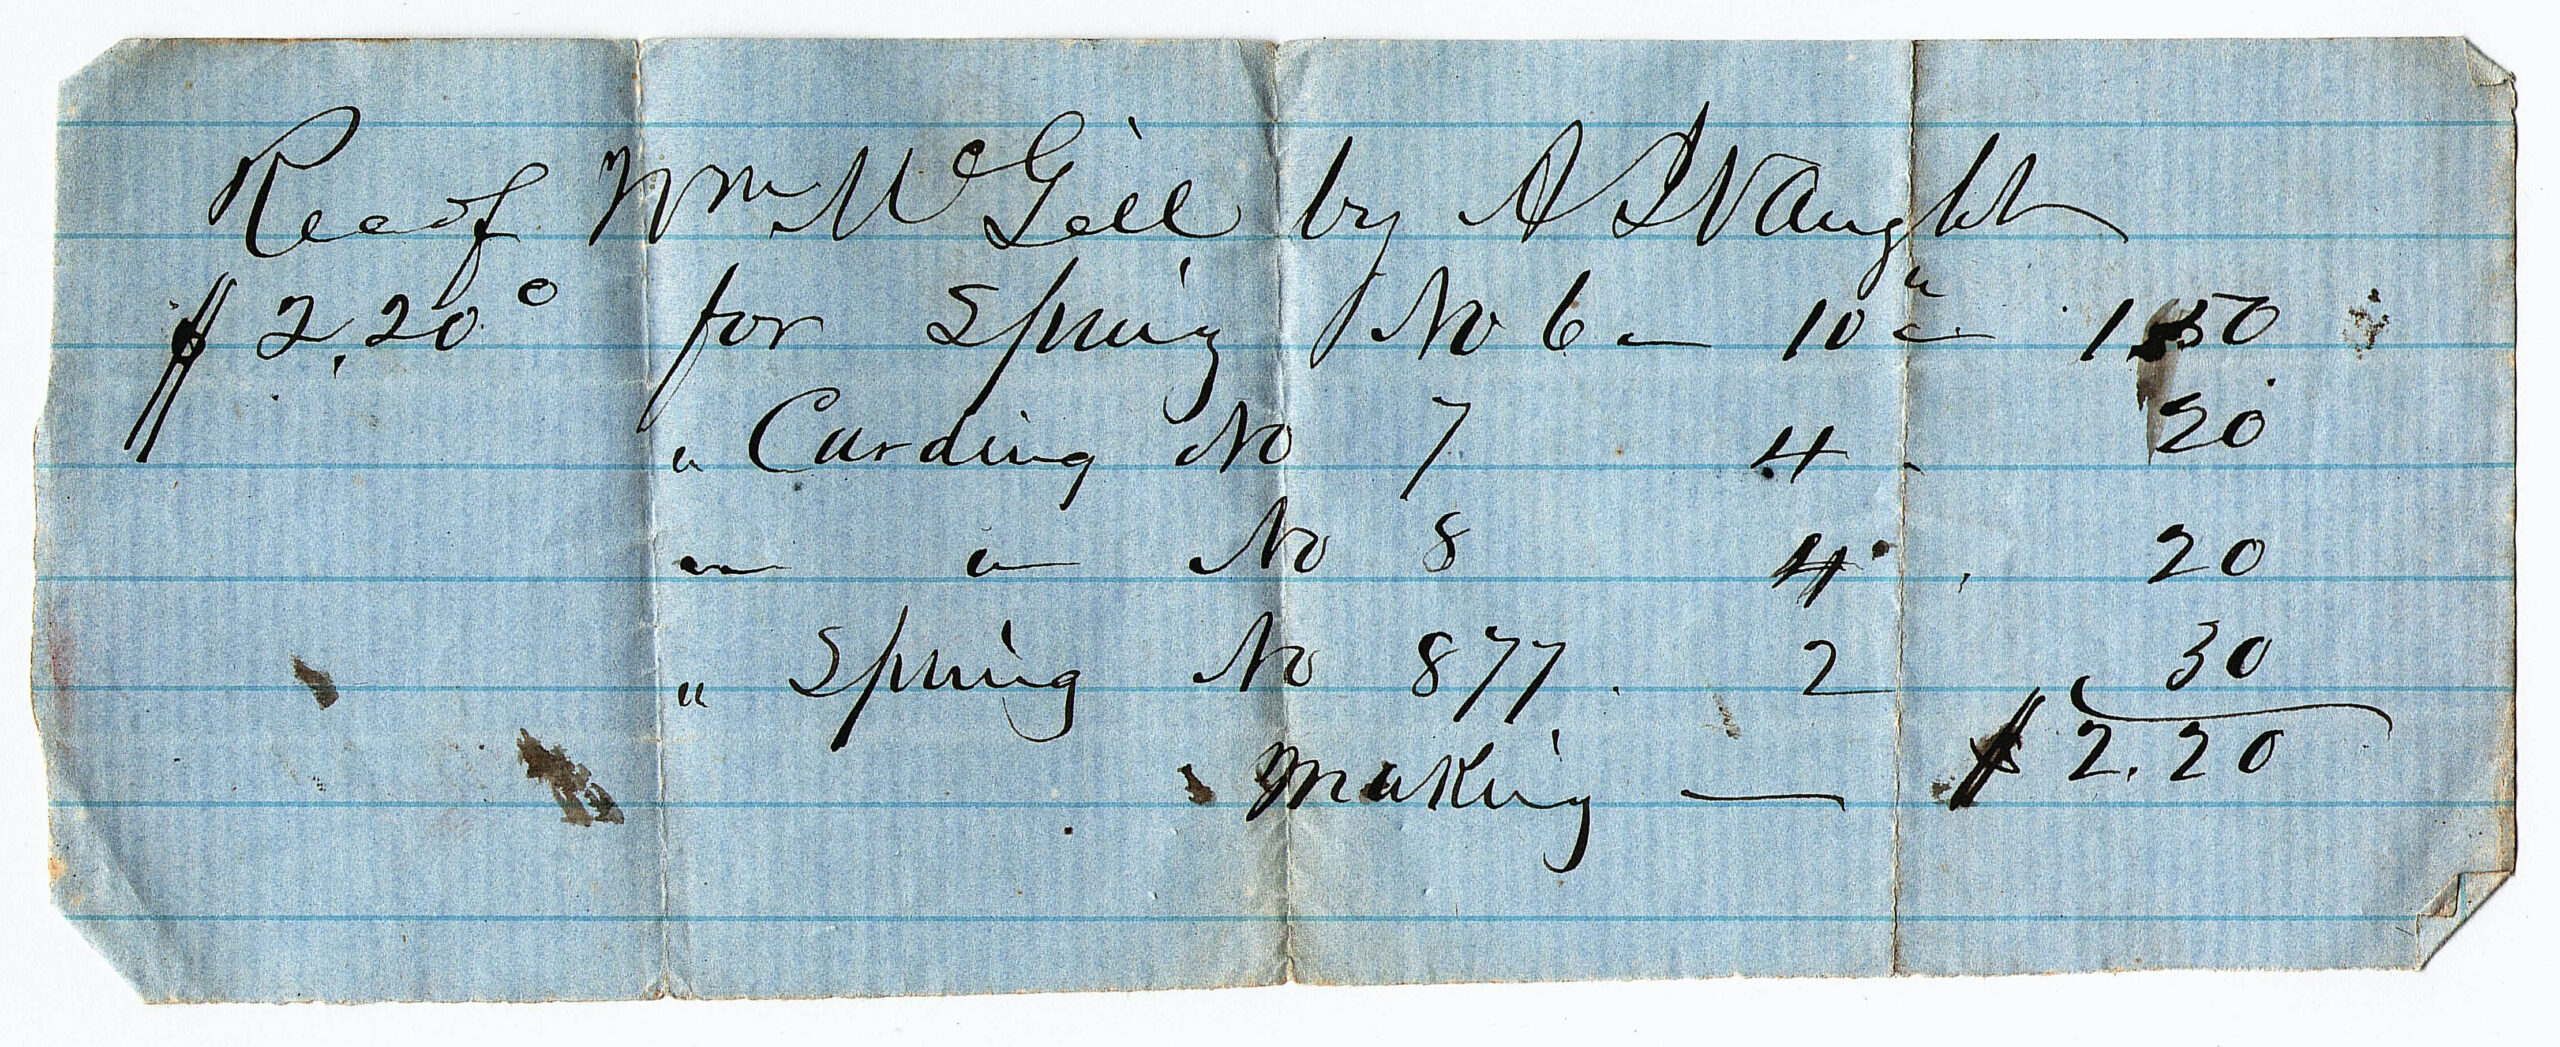 Rec of Wm McGill by A S Vaught
$2.20 for Spning No 6 — 10 " 1.50
" Carding No 7 4 20
" " No 8 4 20
" Spning No 877. 2 30
Making — $2.20